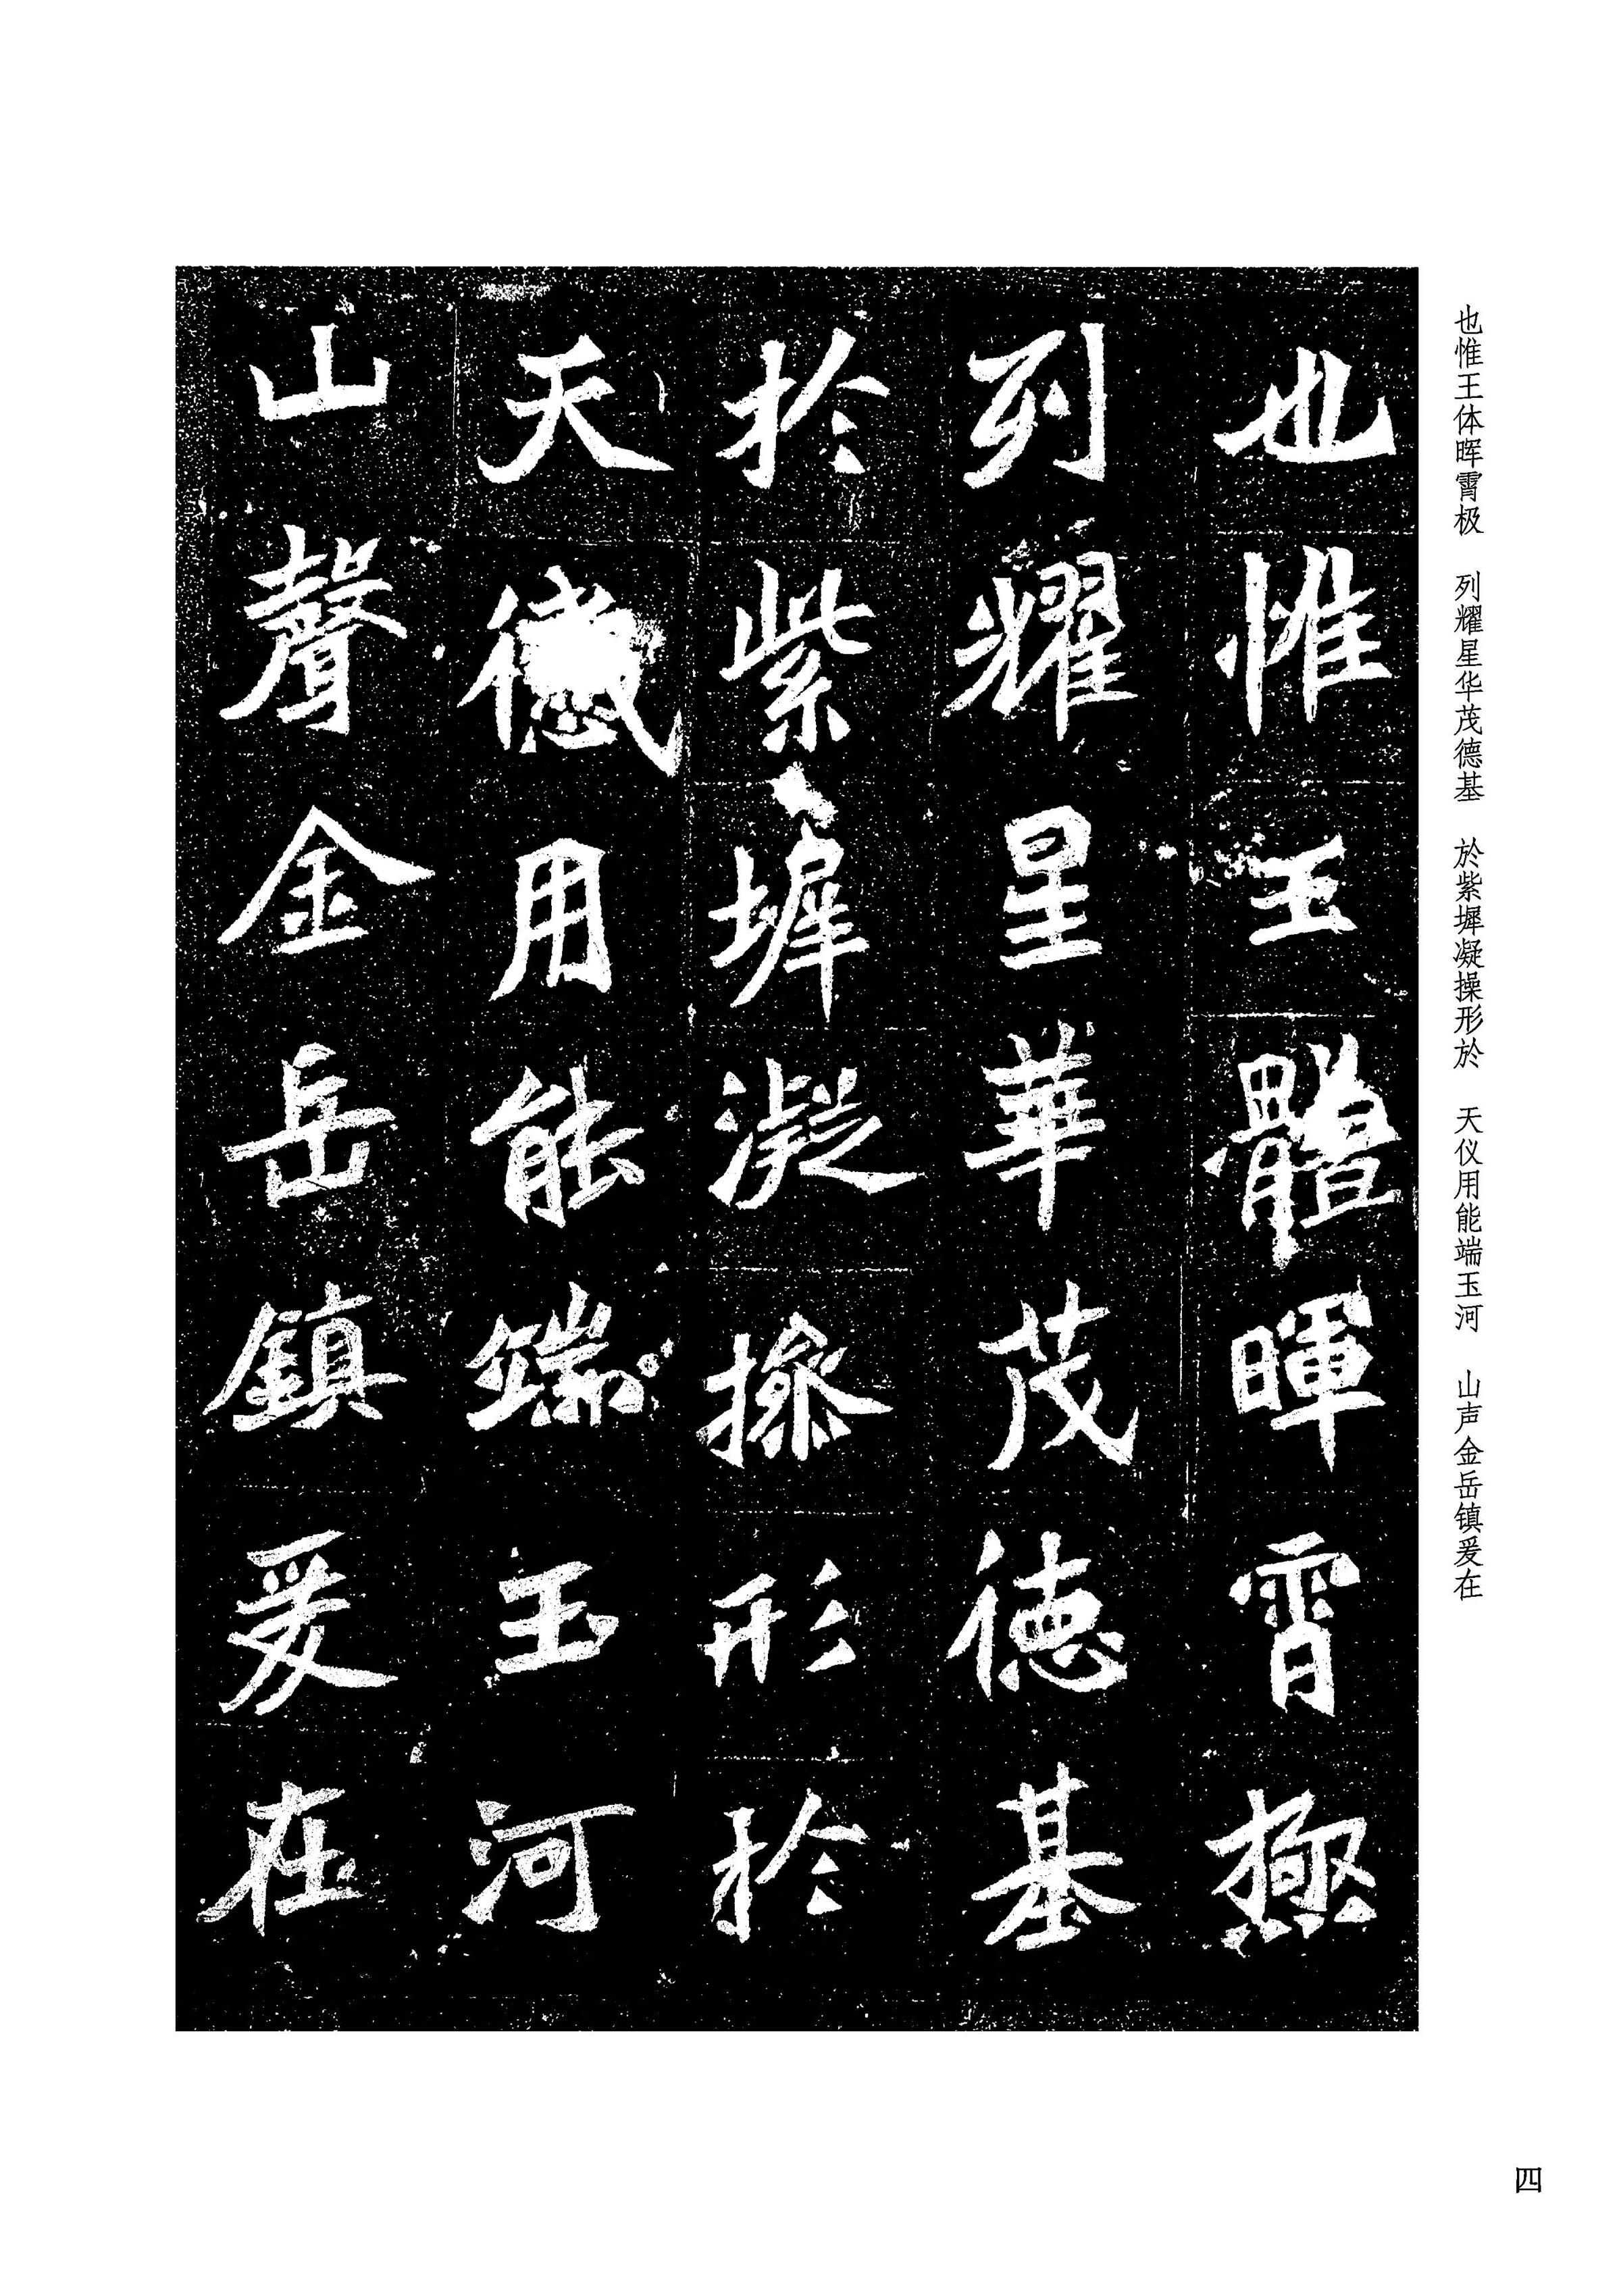 也惟王体晖霄极　列耀星华茂德基　於紫墀凝操形於　天仪用能端玉河　山声金岳镇爰在
也惟王體暉霄極
列耀星華茂德基
於紫墀凝操形於
天儀用能端玉河
山聲金岳鎮爰在
四